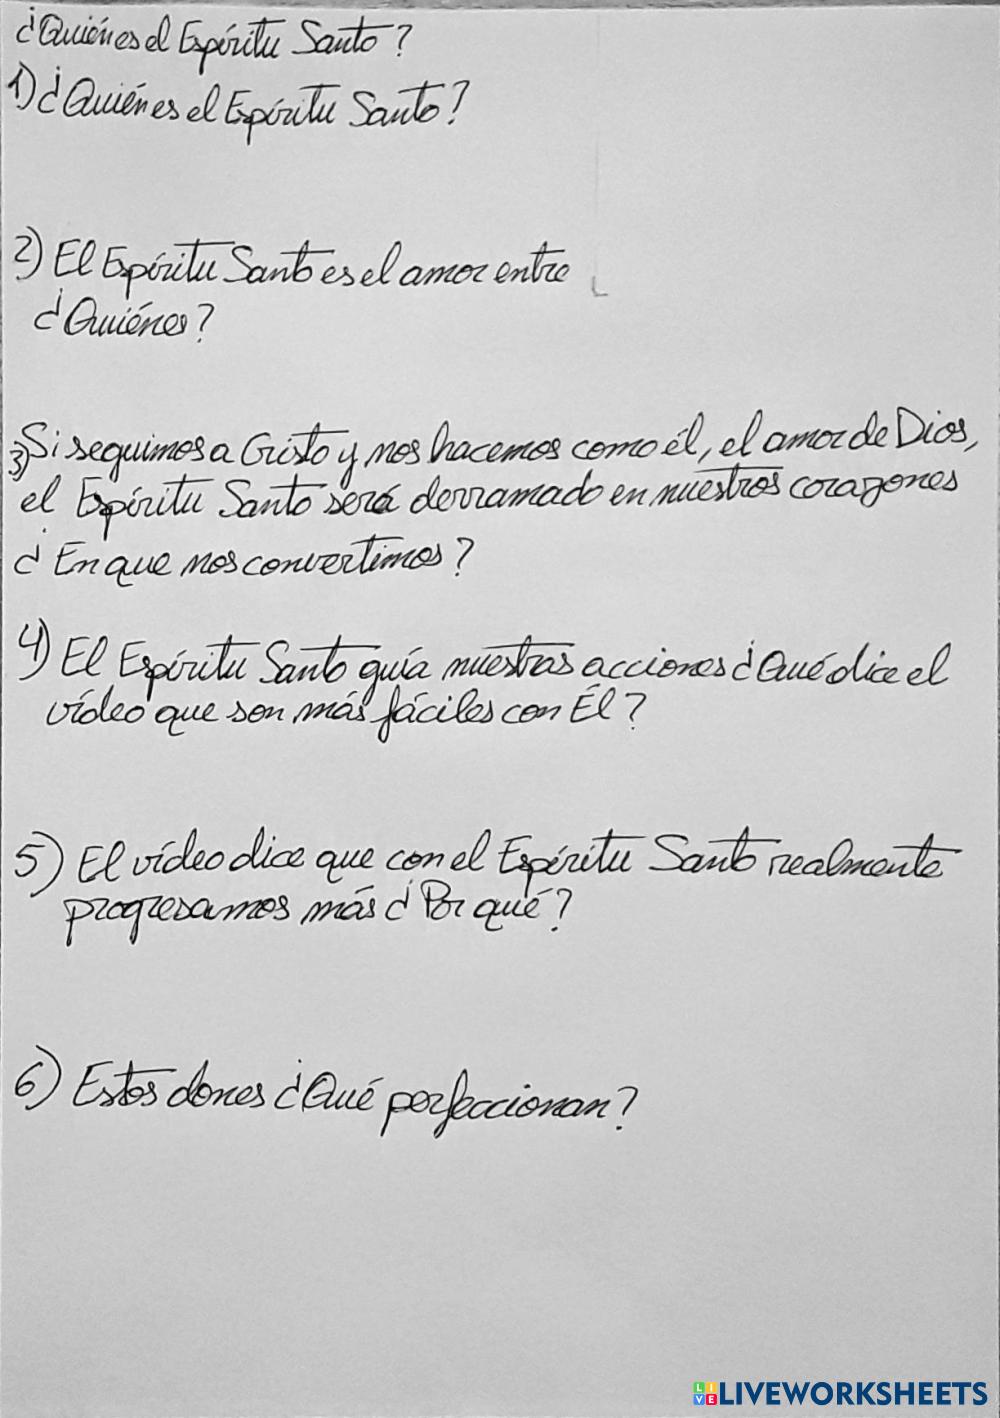 ¿Quién es el Espíritu Santo?
1) ¿Quién es el Espíritu Santo?
2) El Espíritu Santo es el amor entre
¿Quiénes?
3) Si seguimos a Cristo y nos hacemos como él, el amor de Dios,
el Espíritu Santo será derramado en nuestros corazones
¿En que nos convertimos?
4) El Espíritu Santo guía nuestras acciones ¿Qué dice el
vídeo que son más fáciles con Él?
5) El vídeo dice que con el Espíritu Santo realmente
progresamos más ¿Por qué?
6) Estos dones ¿Qué perfeccionan?
LIVE LIVEWORKSHEETS